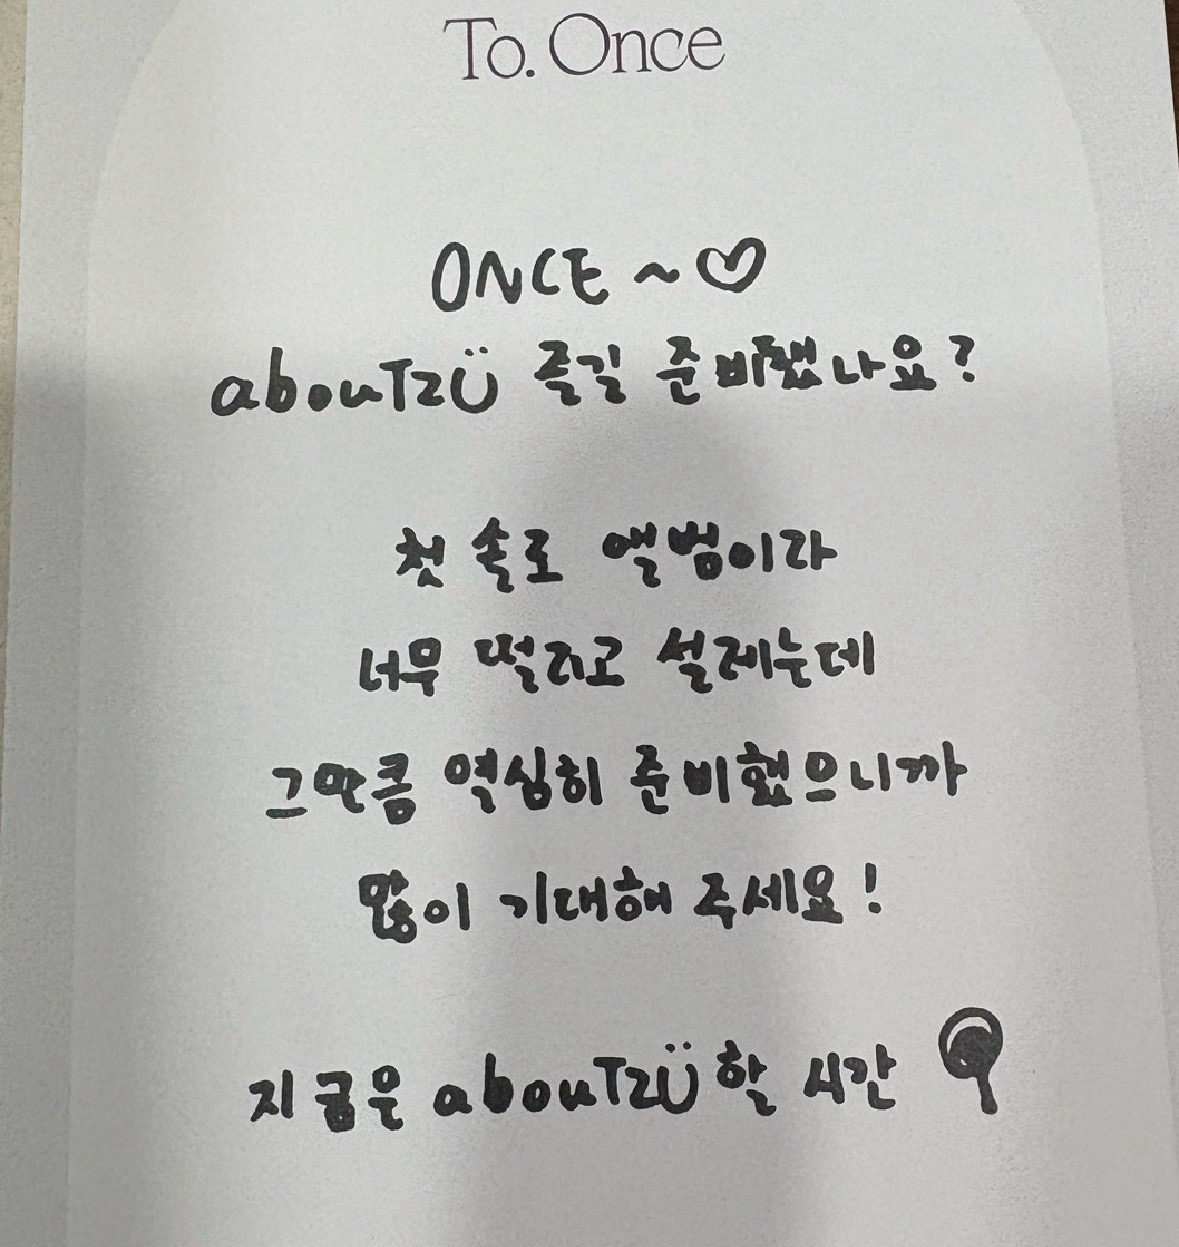 To. Once
ONCE ~ ♡
abouTZÜ 즐길 준비했나요?
첫 솔로 앨범이라
너무 떨리고 설레는데
그만큼 열심히 준비했으니까
많이 기대해 주세요!
지금은 abouTZÜ 할 시간